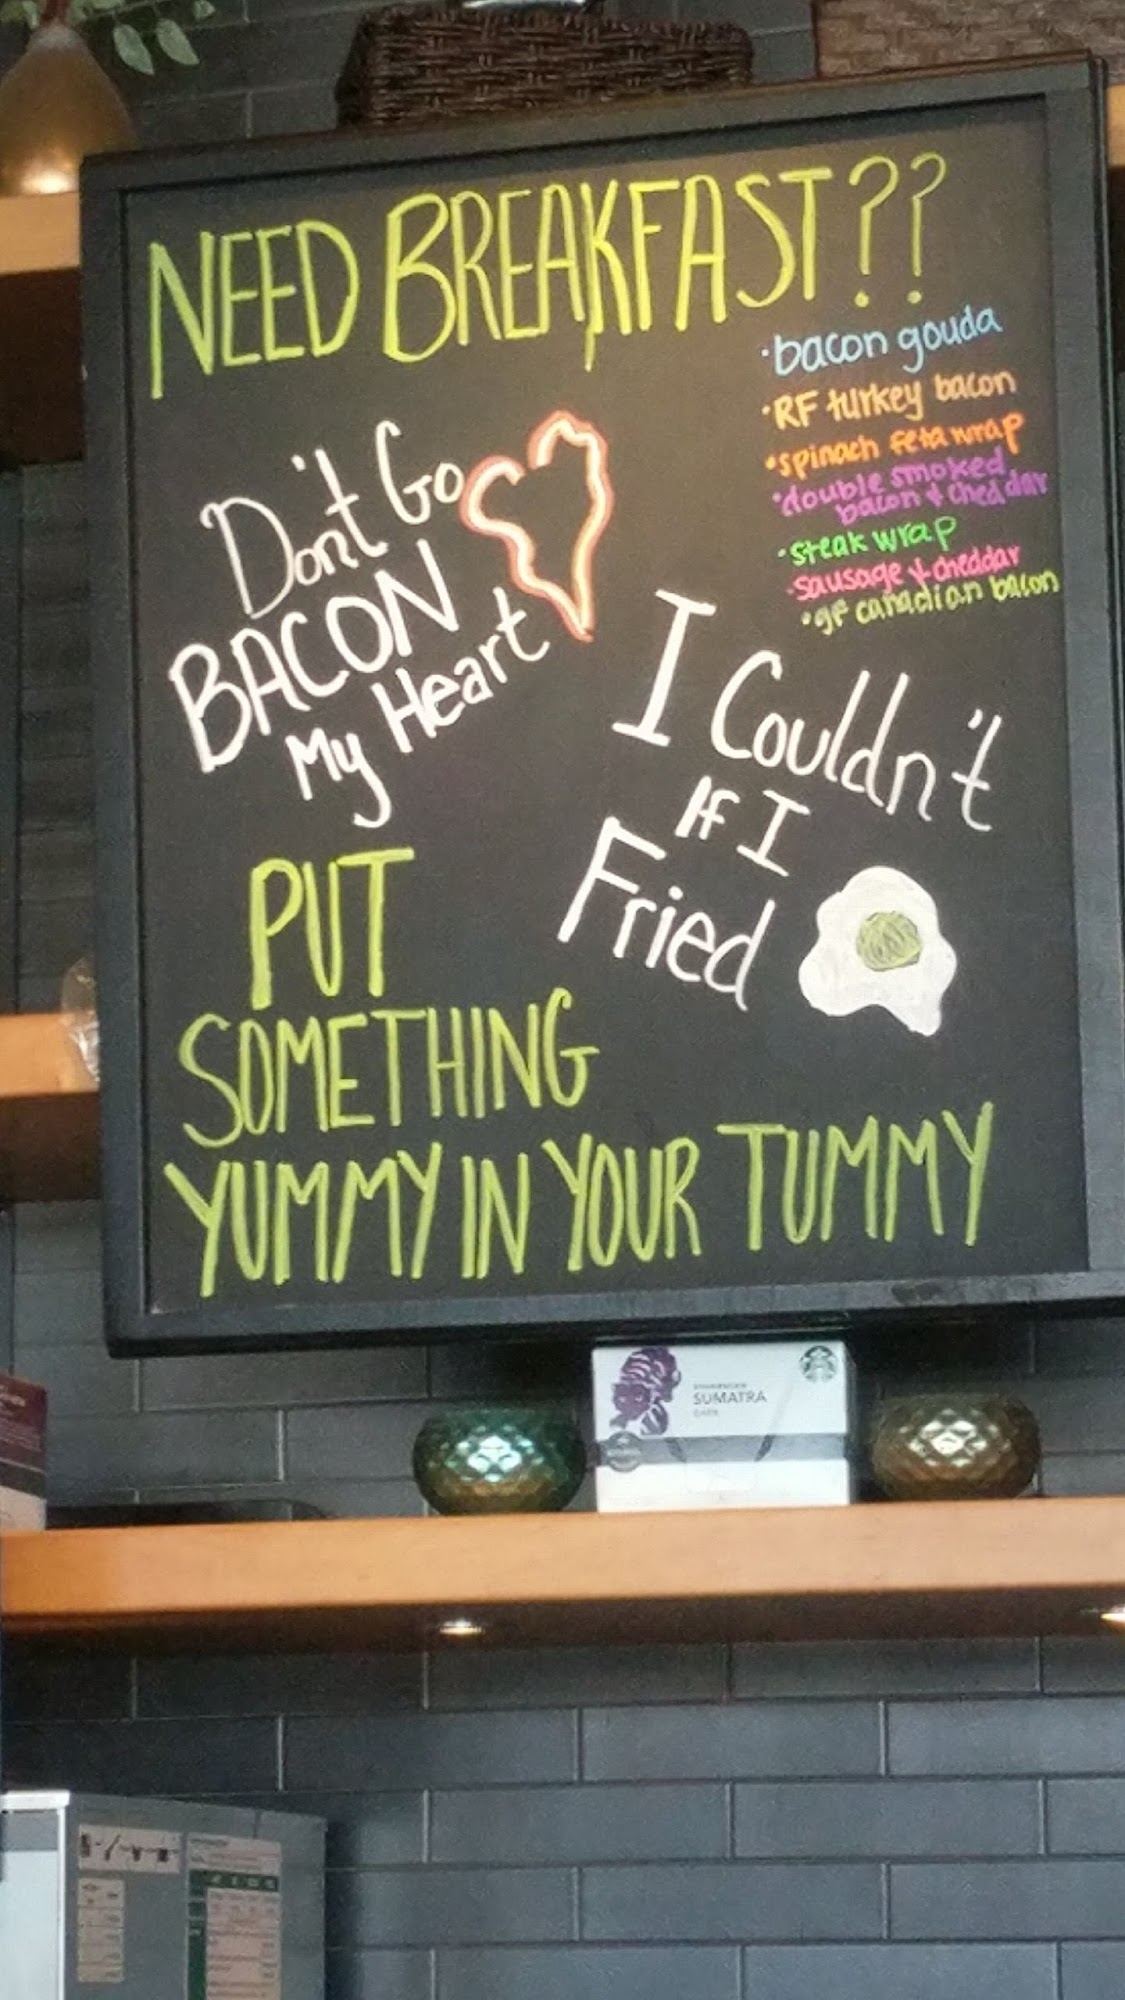 NEED BREAKFAST??
·bacon gouda
·RF turkey bacon
·spinach feta wrap
·double smoked
bacon & cheddar
·steak wrap
·sausage & cheddar
·gf canadian bacon
Don't Go
BACON
My Heart
I Couldn't
If I
Fried
PUT
SOMETHING
YUMMY IN YOUR TUMMY
SUMATRA